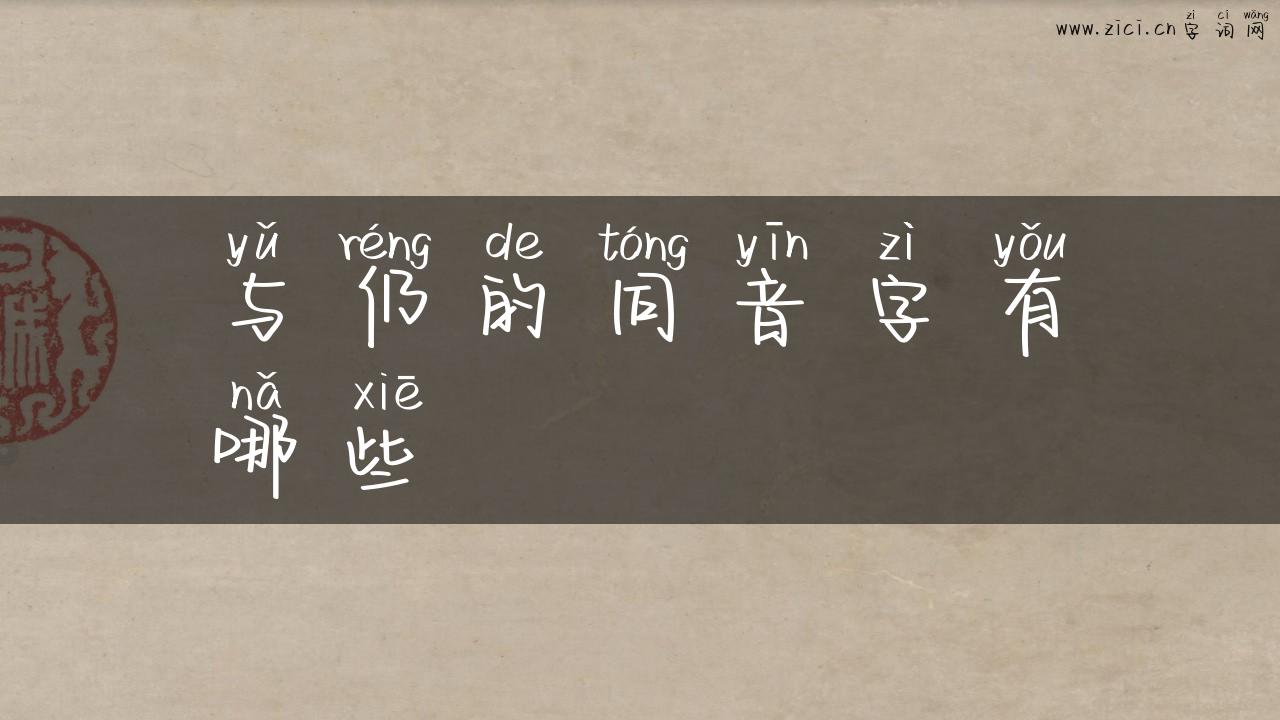 zì cí wǎng
www.zici.cn 字词网
yǔ réng de tóng yīn zì yǒu
与仍的同音字有
nǎ xiē
哪些